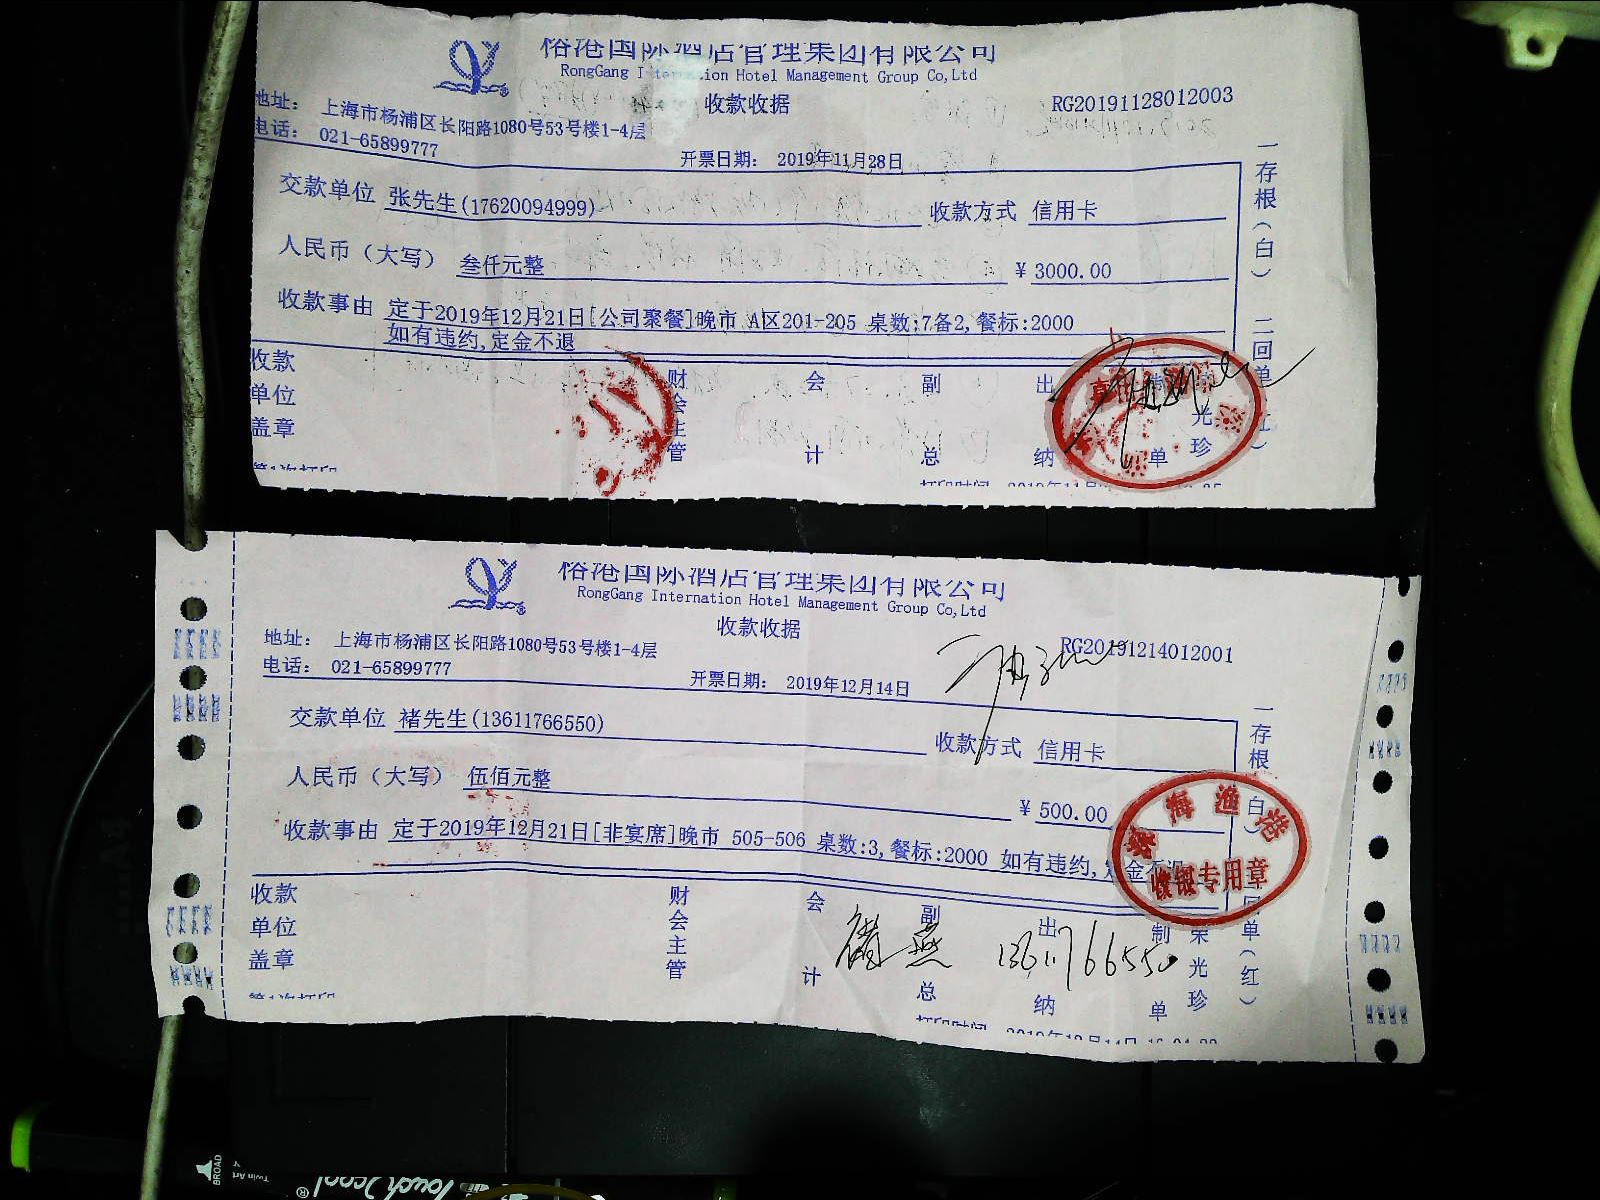 榕港国际酒店管理集团有限公司
RongGang Internation Hotel Management Group Co,Ltd
收款收据
RG20191128012003
地址： 上海市杨浦区长阳路1080号53号楼1-4层
电话： 021-65899777
开票日期： 2019年11月28日
交款单位 张先生(17620094999) 收款方式 信用卡
人民币（大写） 叁仟元整 ¥ 3000.00
收款事由 定于2019年12月21日[公司聚餐]晚市 A区201-205 桌数:7备2,餐标:2000
如有违约,定金不退
收款单位盖章 财会主管 会计 副总 出纳 制单 荣光珍
一存根（白） 二回单（红）
第1次打印
榕港国际酒店管理集团有限公司
RongGang Internation Hotel Management Group Co,Ltd
收款收据
RG20191214012001
地址： 上海市杨浦区长阳路1080号53号楼1-4层
电话： 021-65899777
开票日期： 2019年12月14日
交款单位 褚先生(13611766550) 收款方式 信用卡
人民币（大写） 伍佰元整 ¥ 500.00
收款事由 定于2019年12月21日[非宴席]晚市 505-506 桌数:3,餐标:2000 如有违约,定金不退
海渔港
收银专用章
收款单位盖章 财会主管 会计 副总 出纳 制单 荣光珍
褚燕 13611766550
一存根（白） 回单（红）
第1次打印
打印时间
BROAD
Twin
Touch
cool